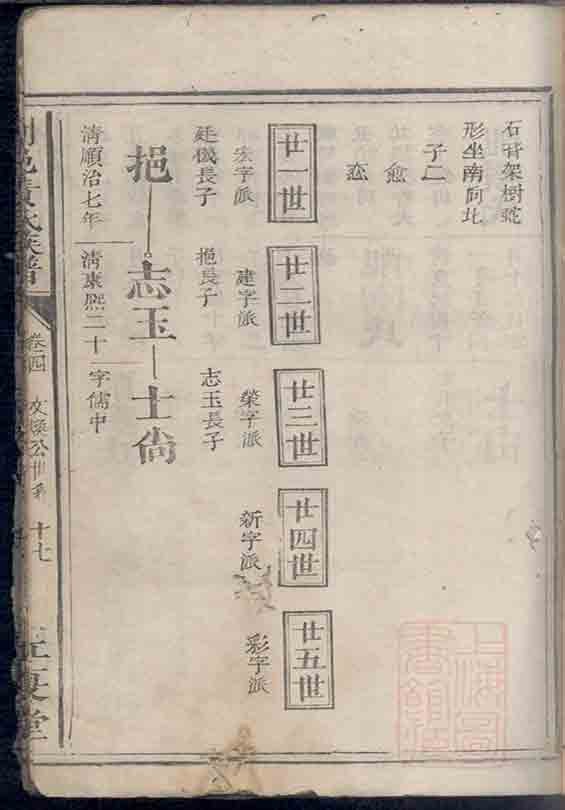 石膏架樹蛇
形坐南向北
子二
愈
恋
廿一世
廿二世
廿三世
廿四世
廿五世
宏字派
建字派
榮字派
新字派
彩字派
廷機長子
挹長子
志玉長子
挹
志玉
士尙
清順治七年
清康熙二十
字儒中
黃氏族譜
卷二四
公世系
十七
上海圖
書館